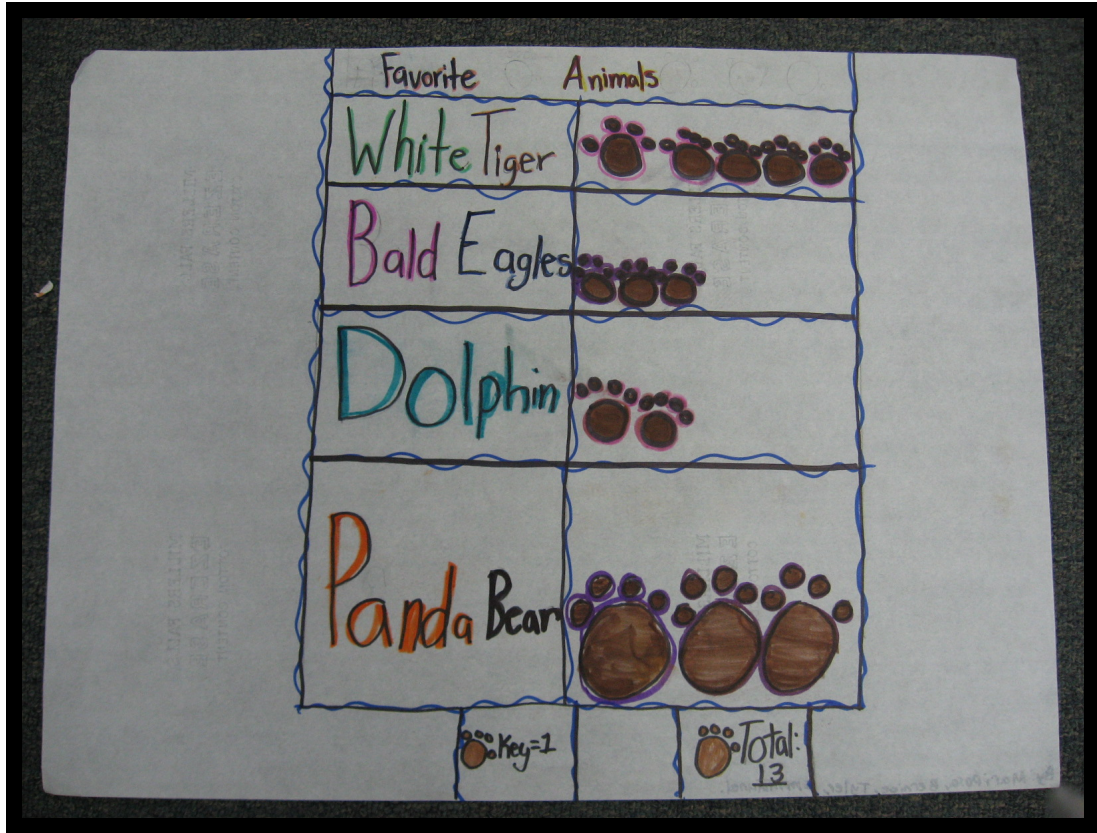 Favorite Animals
White Tiger
Bald Eagles
Dolphin
Panda Bear
Key=1
Total:
13